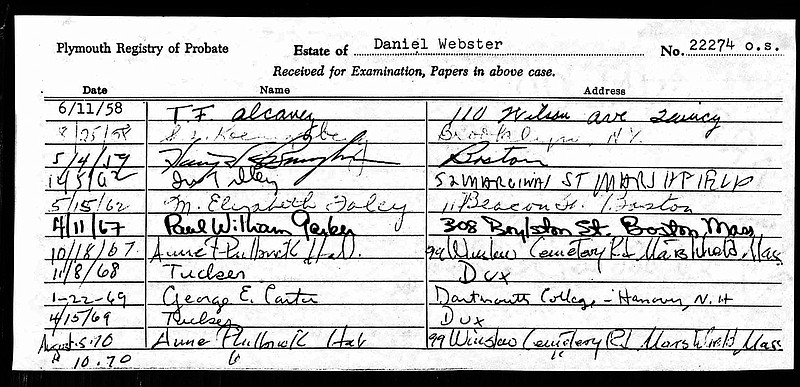 Plymouth Registry of Probate Estate of Daniel Webster No. 22274 o.s.
Received for Examination, Papers in above case.
Date Name Address
6/11/58 T.F. 110 Wilson Ave Quincy
8/25/58 Brooklyn, N.Y.
5/4/59 Boston
St
5/15/62 M. Elizabeth Foley 11 Beacon St. Boston
4/11/67 Paul William 308 Boylston St. Boston Mass
10/18/67 Anne Philbrick Hall. 99 Winslow Cemetery Rd Marshfield, Mass
11/8/68 Dux
1-22-69 George E. Carter Dartmouth College - Hanover, N.H
4/15/69 Dux
August 5.70 Anne Philbrick Hall 99 Winslow Cemetery Rd. Marshfield, Mass
" 10.70 " "